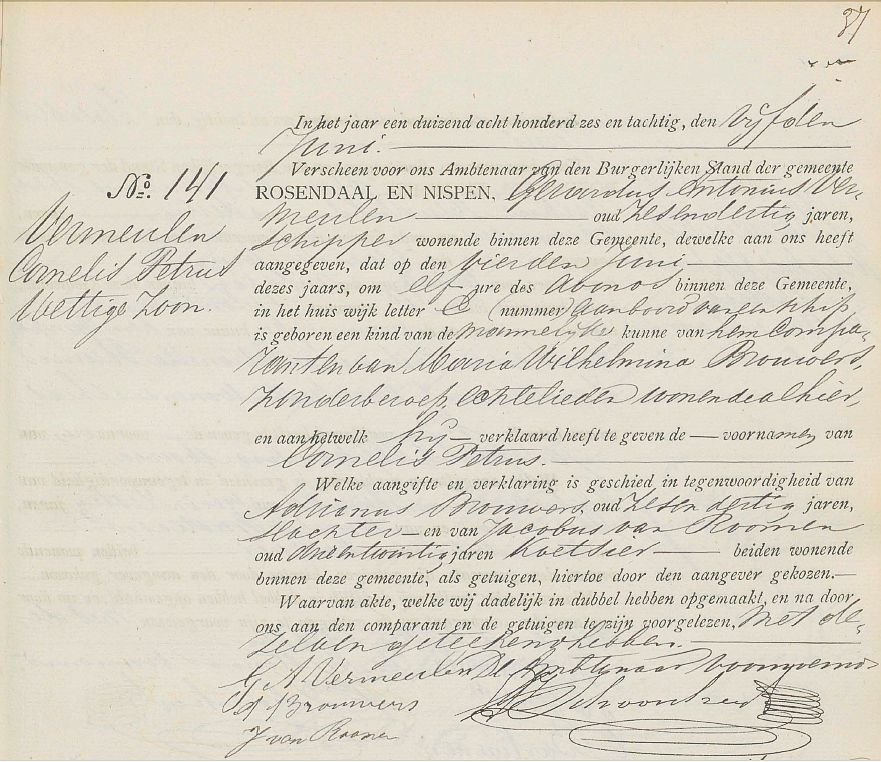 37
In het jaar een duizend acht honderd zes en tachtig, den vijfden
Juni.
Verscheen voor ons Ambtenaar van den Burgerlijken Stand der gemeente
No. 141
ROSENDAAL EN NISPEN, Gerardus Antonius Ver-
meulen oud zesendertig jaren,
Vermeulen
Cornelis Petrus
Wettige Zoon.
schipper wonende binnen deze Gemeente, dewelke aan ons heeft
aangegeven, dat op den vierden Juni
dezes jaars, om elf ure des avonds binnen deze Gemeente,
in het huis wijk letter C (nummer) aan boord van een schip
is geboren een kind van de mannelijke kunne van hem Compa-
rant en van Maria Wilhelmina Brouwers,
zonder beroep, echtelieden wonende alhier,
en aan hetwelk hij verklaard heeft te geven de voornamen van
Cornelis Petrus.
Welke aangifte en verklaring is geschied in tegenwoordigheid van
Adrianus Brouwers, oud zesendertig jaren,
slachter en van Jacobus van Roomen
oud drieentwintig jaren koetsier beiden wonende
binnen deze gemeente, als getuigen, hiertoe door den aangever gekozen.
Waarvan akte, welke wij dadelijk in dubbel hebben opgemaakt, en na door
ons aan den comparant en de getuigen te zijn voorgelezen, met de-
zelven geteekend hebben.
G A Vermeulen De Ambtenaar voornoemd
A Brouwers
J van Roomen